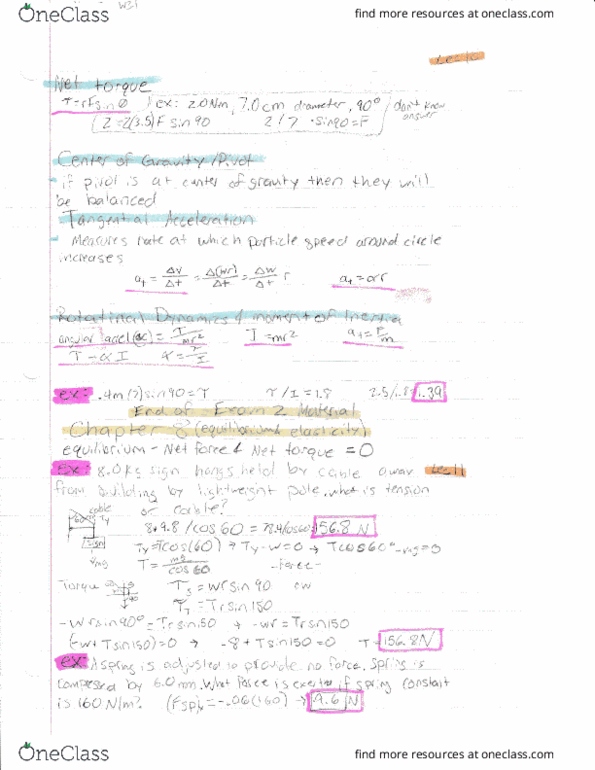 OneClass
find more resources at oneclass.com
Net torque
τ=rFsinØ ex: 2.0Nm, 7.0cm diameter, 90° don't know answer
2=2(3.5)F sin 90 2/7 ·sin90=F
Center of Gravity/Pivot
- if pivot is at center of gravity then they will
be balanced
Tangential Acceleration
- Measures rate at which particle speed around circle
increases
a_t = Δv/Δt = Δ(wr)/Δt = Δw/Δt r a_t = αr
Rotational Dynamics & moment of Inertia
angular accel(α) = T/mr² I = mr² a_t = F/m
T = αI α = T/I
ex: .4m(7)sin90=T τ/I=1.8 2.5/1.8= 1.39
End of Exam 2 Material
Chapter 8 (equilibrium & elasticity)
equilibrium - Net force & Net torque = 0
Ex: 8.0kg sign hangs held by cable away
from building by lightweight pole, what is tension
of cable?
cable
60 Ty
sign
mg
8*9.8/cos60 = 78.4/cos60 = 156.8 N
Ty=Tcos(60) → Ty-w=0 → Tcos60°-mg=0
T = mg/cos60 -force-
Torque
Ts = wrsin90 cw
T_T = Trsin150
-Wrsin90° = Trsin150 → -wr=Trsin150
(-w+Tsin150)=0 → -8+Tsin150=0 T= 156.8N
ex: A spring is adjusted to provide no force. Spring is
compressed by 6.0mm. What force is exerted if spring constant
is 160 N/m? (Fsp)x=-.06(160) → 9.6 N
OneClass
find more resources at oneclass.com